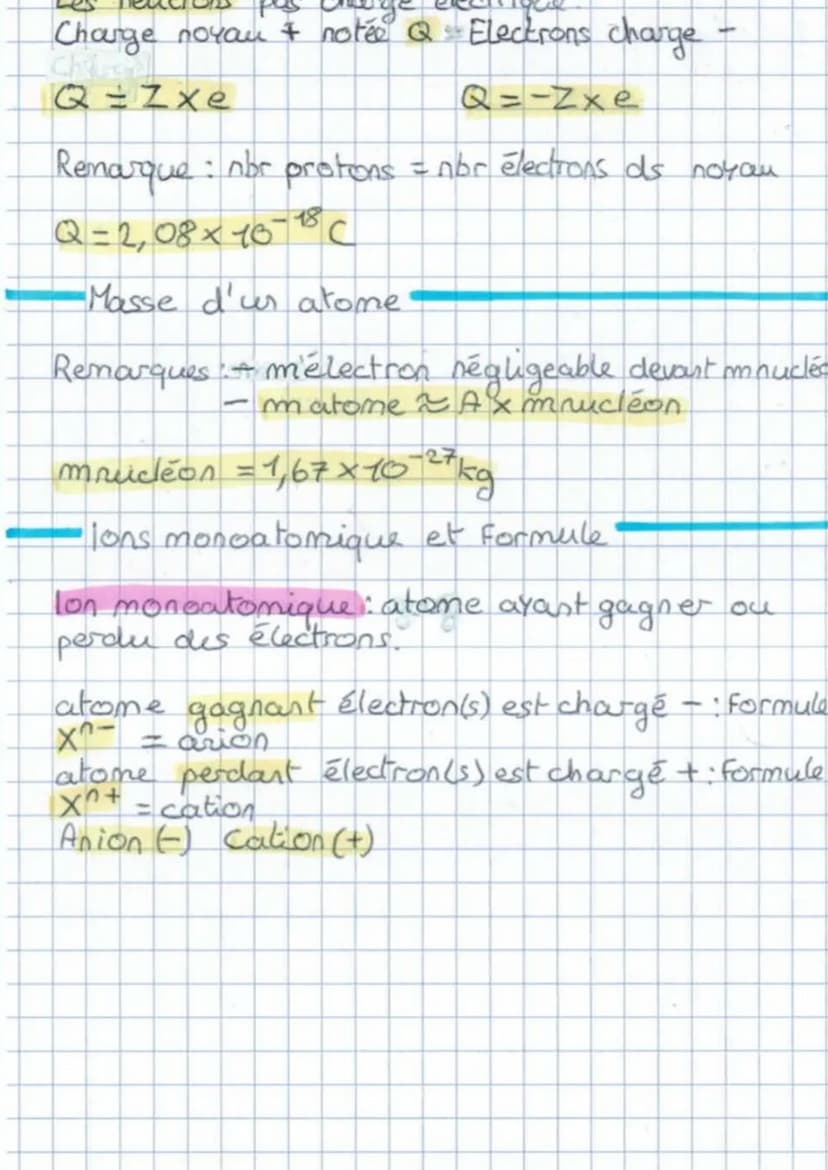 Les neutrons pas charge électrique.
Charge noyau + notée Q Electrons charge -
Q = Z x e Q = -Z x e
Remarque : nbr protons = nbr électrons ds noyau
Q = 2,08 x 10⁻¹⁸ C
Masse d'un atome
Remarques : - m électron négligeable devant mnucléo
- m atome ≈ A x mnucléon
mnucléon = 1,67 x 10⁻²⁷ kg
Ions monoatomique et formule
Ion monoatomique : atome ayant gagner ou
perdu des électrons.
atome gagnant électron(s) est chargé - : Formule
Xⁿ⁻ = anion
atome perdant électron(s) est chargé + : Formule
Xⁿ⁺ = cation
Anion (-) Cation (+)